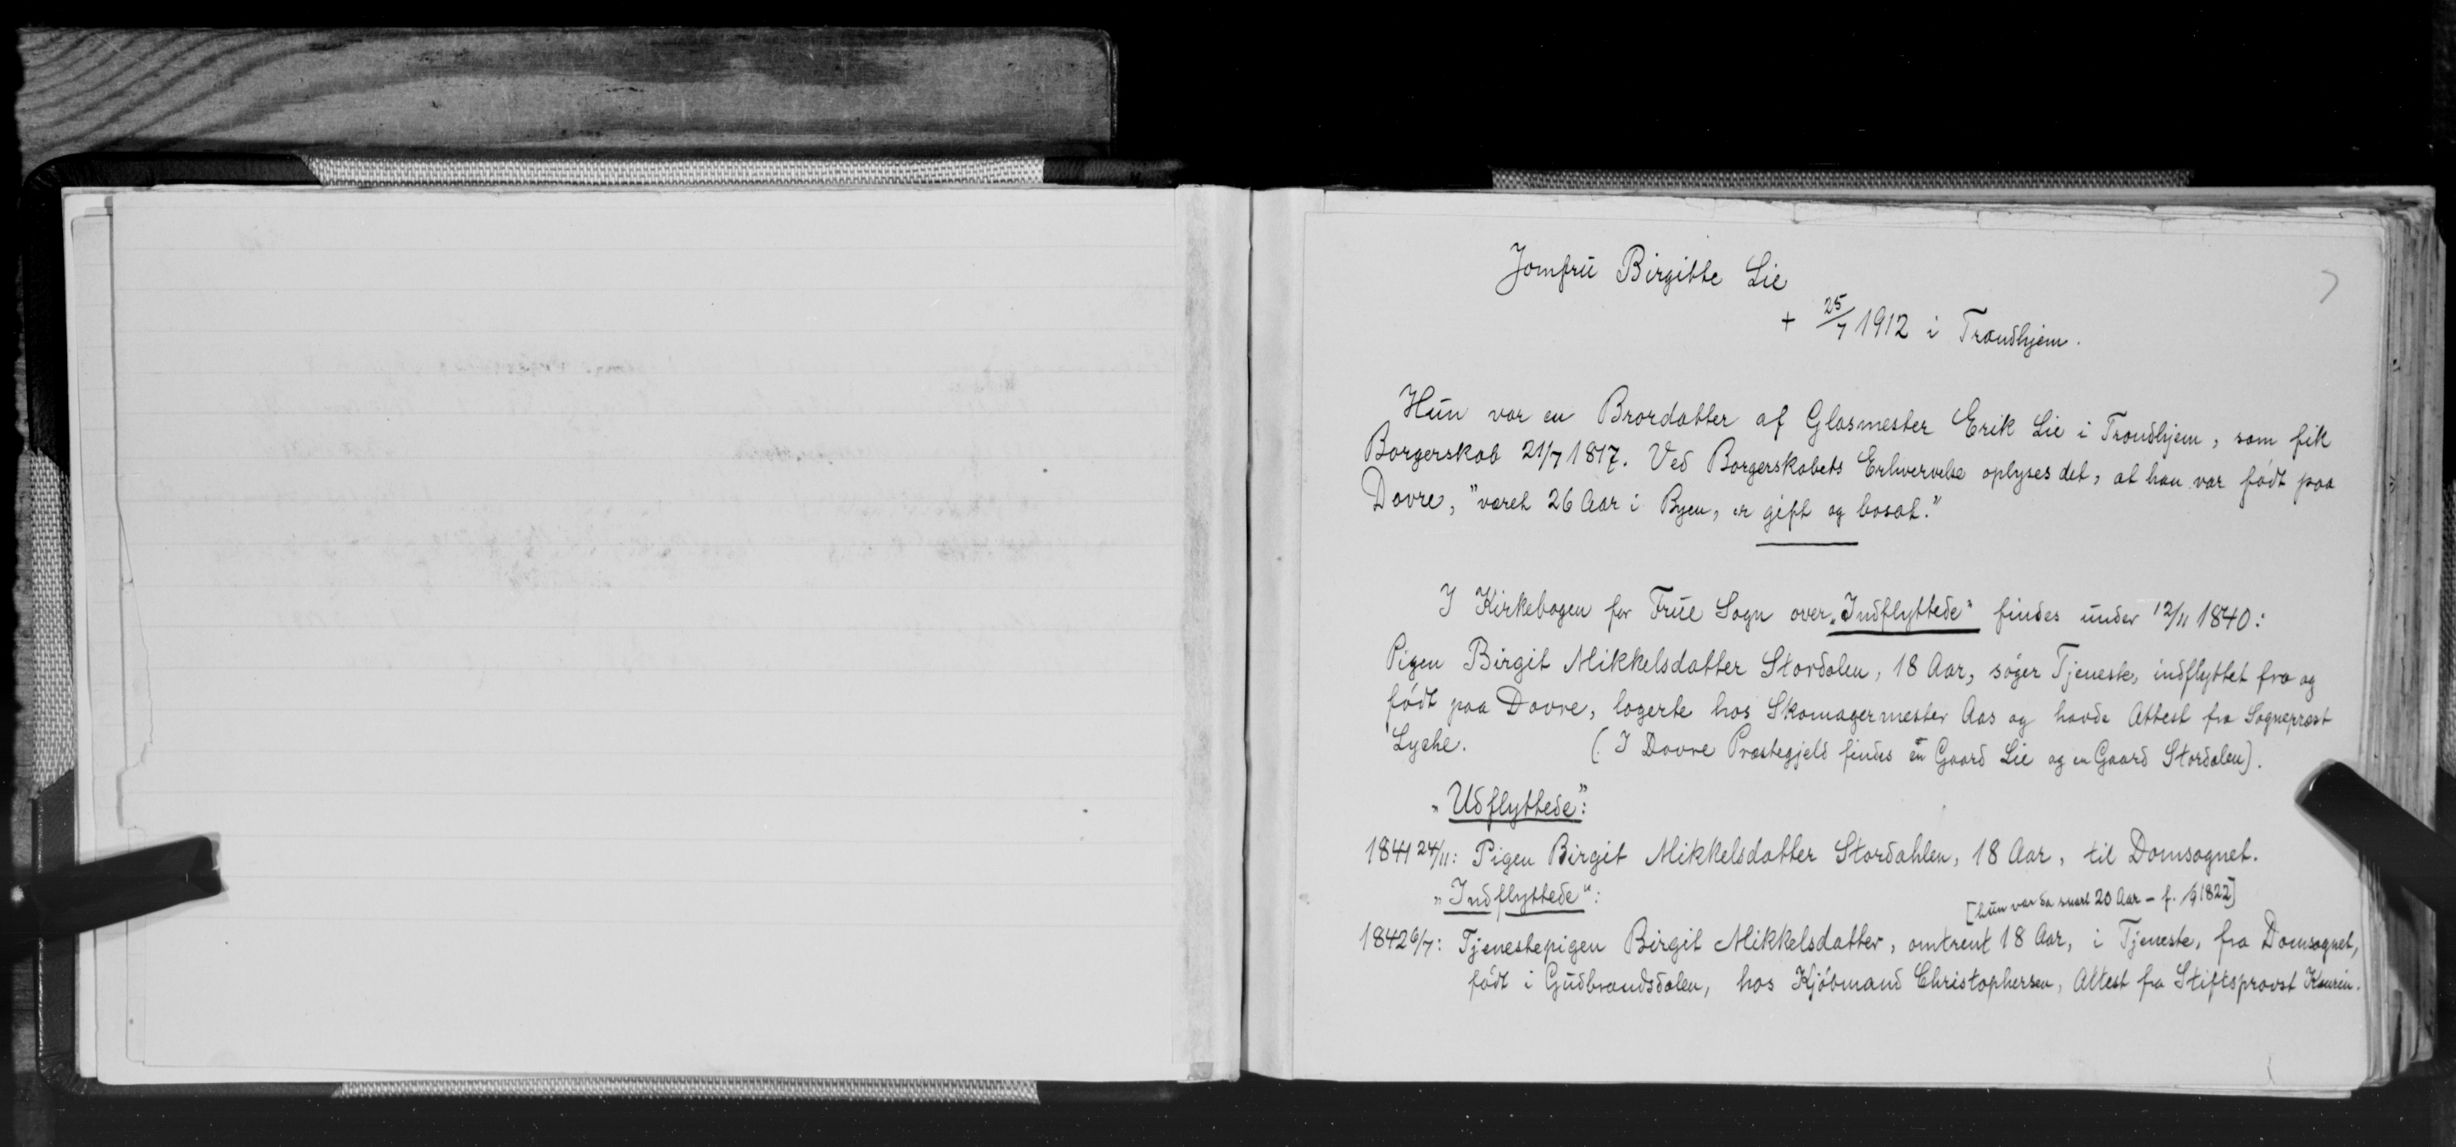 7
Jomfru Birgitte Lie
+ 25/7 1912 i Trondhjem.
Hun var en Brordatter af Glasmester Erik Lie i Trondhjem, som fik
Borgerskab 21/7 1817. Ved Borgerskabets Erhvervelse oplyses det, at han var født paa
Dovre, "været 26 Aar i Byen, er gift og bosat."
I Kirkebogen for Frue Sogn over „Indflyttede" findes under 12/11 1840:
Pigen Birgit Mikkelsdatter Stordalen, 18 Aar, søger Tjeneste, indflyttet fra og
født paa Dovre, logerte hos Skomagermester Aas og havde Attest fra Sogneprest
Lyche. (I Dovre Præstegjeld findes en Gaard Lie og en Gaard Stordalen).
„Udflyttede":
1841 24/11: Pigen Birgit Mikkelsdatter Stordahlen, 18 Aar, til Domsognet.
„Indflyttede":
[hun var da snart 20 Aar - f. 1822]
1842 6/7: Tjenestepigen Birgit Mikkelsdatter, omtrent 18 Aar, i Tjeneste, fra Domsognet,
født i Gudbrandsdalen, hos Kjøbmand Christophersen, Attest fra Stiftsprovst